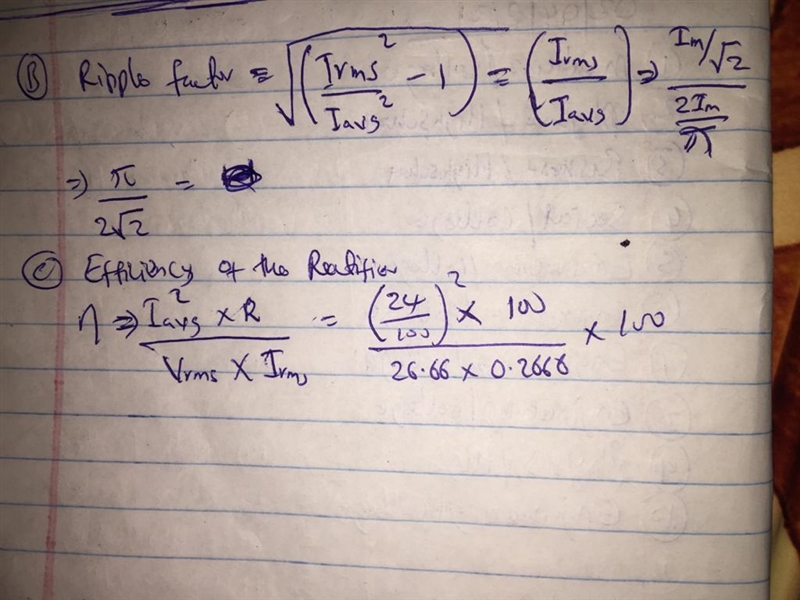 (B) Ripple factor = √(Irms²/Iavg² − 1) = (Irms/Iavg) ⇒ (Im/√2)/(2Im/π)
⇒ π/2√2 =
(C) Efficiency of the Rectifier
η ⇒ (I²avg × R)/(Vrms × Irms) = ((24/100)² × 100)/(26.66 × 0.2666) × 100